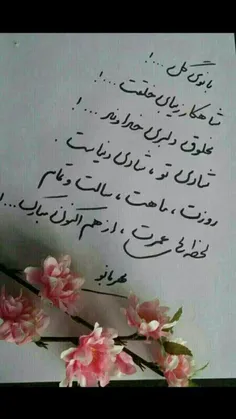 بانوی گل ...!
شاهکار زیبای خلقت ...!
مخلوق دلبری خداوند ...!
شادی تو ، شادی دنیاست .
روزت ، ماهت ، سالت و تمام
لحظه های عمرت ، از هم اکنون مبارک ...!
مهربانو